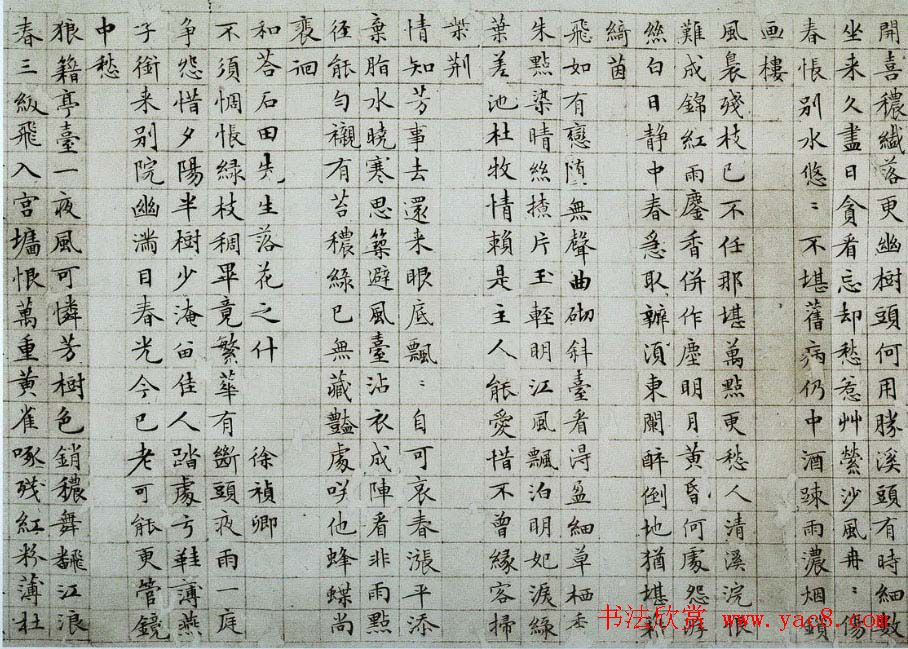 開喜穠纎落更幽樹頭何用勝溪頭有時細數
坐来久盡日貪看忘却愁惹艸縈沙風冉：傷
春悵別水悠：不堪舊病仍中酒踈雨濃烟鎖
画樓
風裊殘枝已不任那堪萬點更愁人清溪浣恨
難成錦紅雨鏖香併作塵明月黄昏何處怨游
絲白日静中春急取辦湏東闌醉倒地猶堪藉
綺茵
飛如有戀墮無聲曲砌斜臺看淂盈細草栖香
朱點染晴絲撩片玉輕明江風飄泊明妃淚綠
葉差池杜牧情賴是主人能愛惜不曾緣客掃
柴荆
情知芳事去還来眼底飄：自可哀春漲平添
棄脂水曉寒思築避風臺沾衣成陣看非雨點
徑能勻襯有苔穠綠已無藏艷處咲他蜂蝶尚
裵徊
和荅石田先生落花之什 徐禎卿
不須惆悵綠枝稠畢竟繁華有斷頭夜雨一庭
争怨惜夕陽半樹少淹畱佳人踏處弓鞋薄燕
子銜来別院幽満目春光今已老可能更管鏡
中愁
狼籍亭臺一夜風可憐芳樹色銷穠舞飜江浪
春三級飛入宫墻恨萬重黄雀啄殘紅粉薄杜
书法欣赏 www.yac8.com